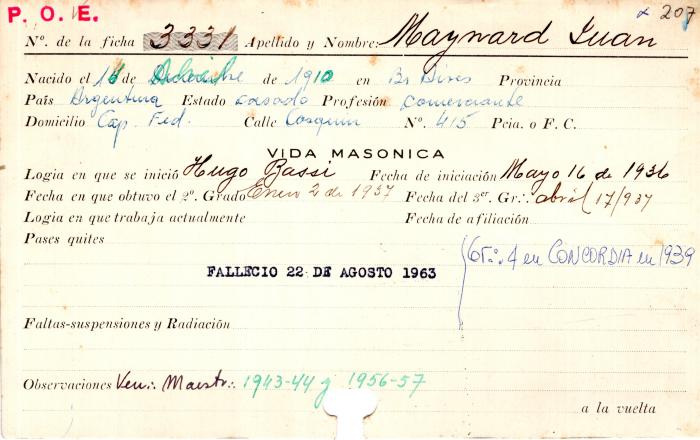 P. O. E.
x 207
Nº. de la ficha 3331 Apellido y Nombre: Maynard Juan
Nacido el 16 de de 1910 en Bs Aires Provincia
País Argentina Estado casado Profesión comerciante
Domicilio Cap. Fed. Calle Cosquin Nº. 415 Pcia. o F. C.
VIDA MASONICA
Logia en que se inició Hugo Bassi Fecha de iniciación Mayo 16 de 1936
Fecha en que obtuvo el 2º. Grado Enero 2 de 1937 Fecha del 3er. Gr∴ abril 17/937
Logia en que trabaja actualmente Fecha de afiliación
Pases quites
Gr∴ 4 en CONCORDIA en 1939
FALLECIO 22 DE AGOSTO 1963
Faltas-suspensiones y Radiación
Observaciones Ven∴ Maestr∴ 1943-44 y 1956-57
a la vuelta